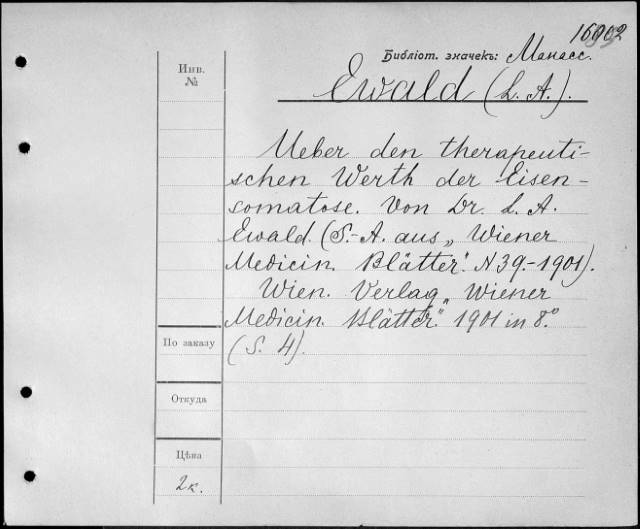 Библіот. значекъ: Манасс.
Инв.
№
Ewald (L. A.).
Ueber den therapeuti-
schen Werth der Eisen-
somatose. Von Dr. L. A.
Ewald. (S.-A. aus „Wiener
Medicin. Blätter". N 39.-1901).
Wien. Verlag „Wiener
Medicin. Blätter". 1901 in 8.°
(S. 4).
По заказу
Откуда
Цѣна
2к.